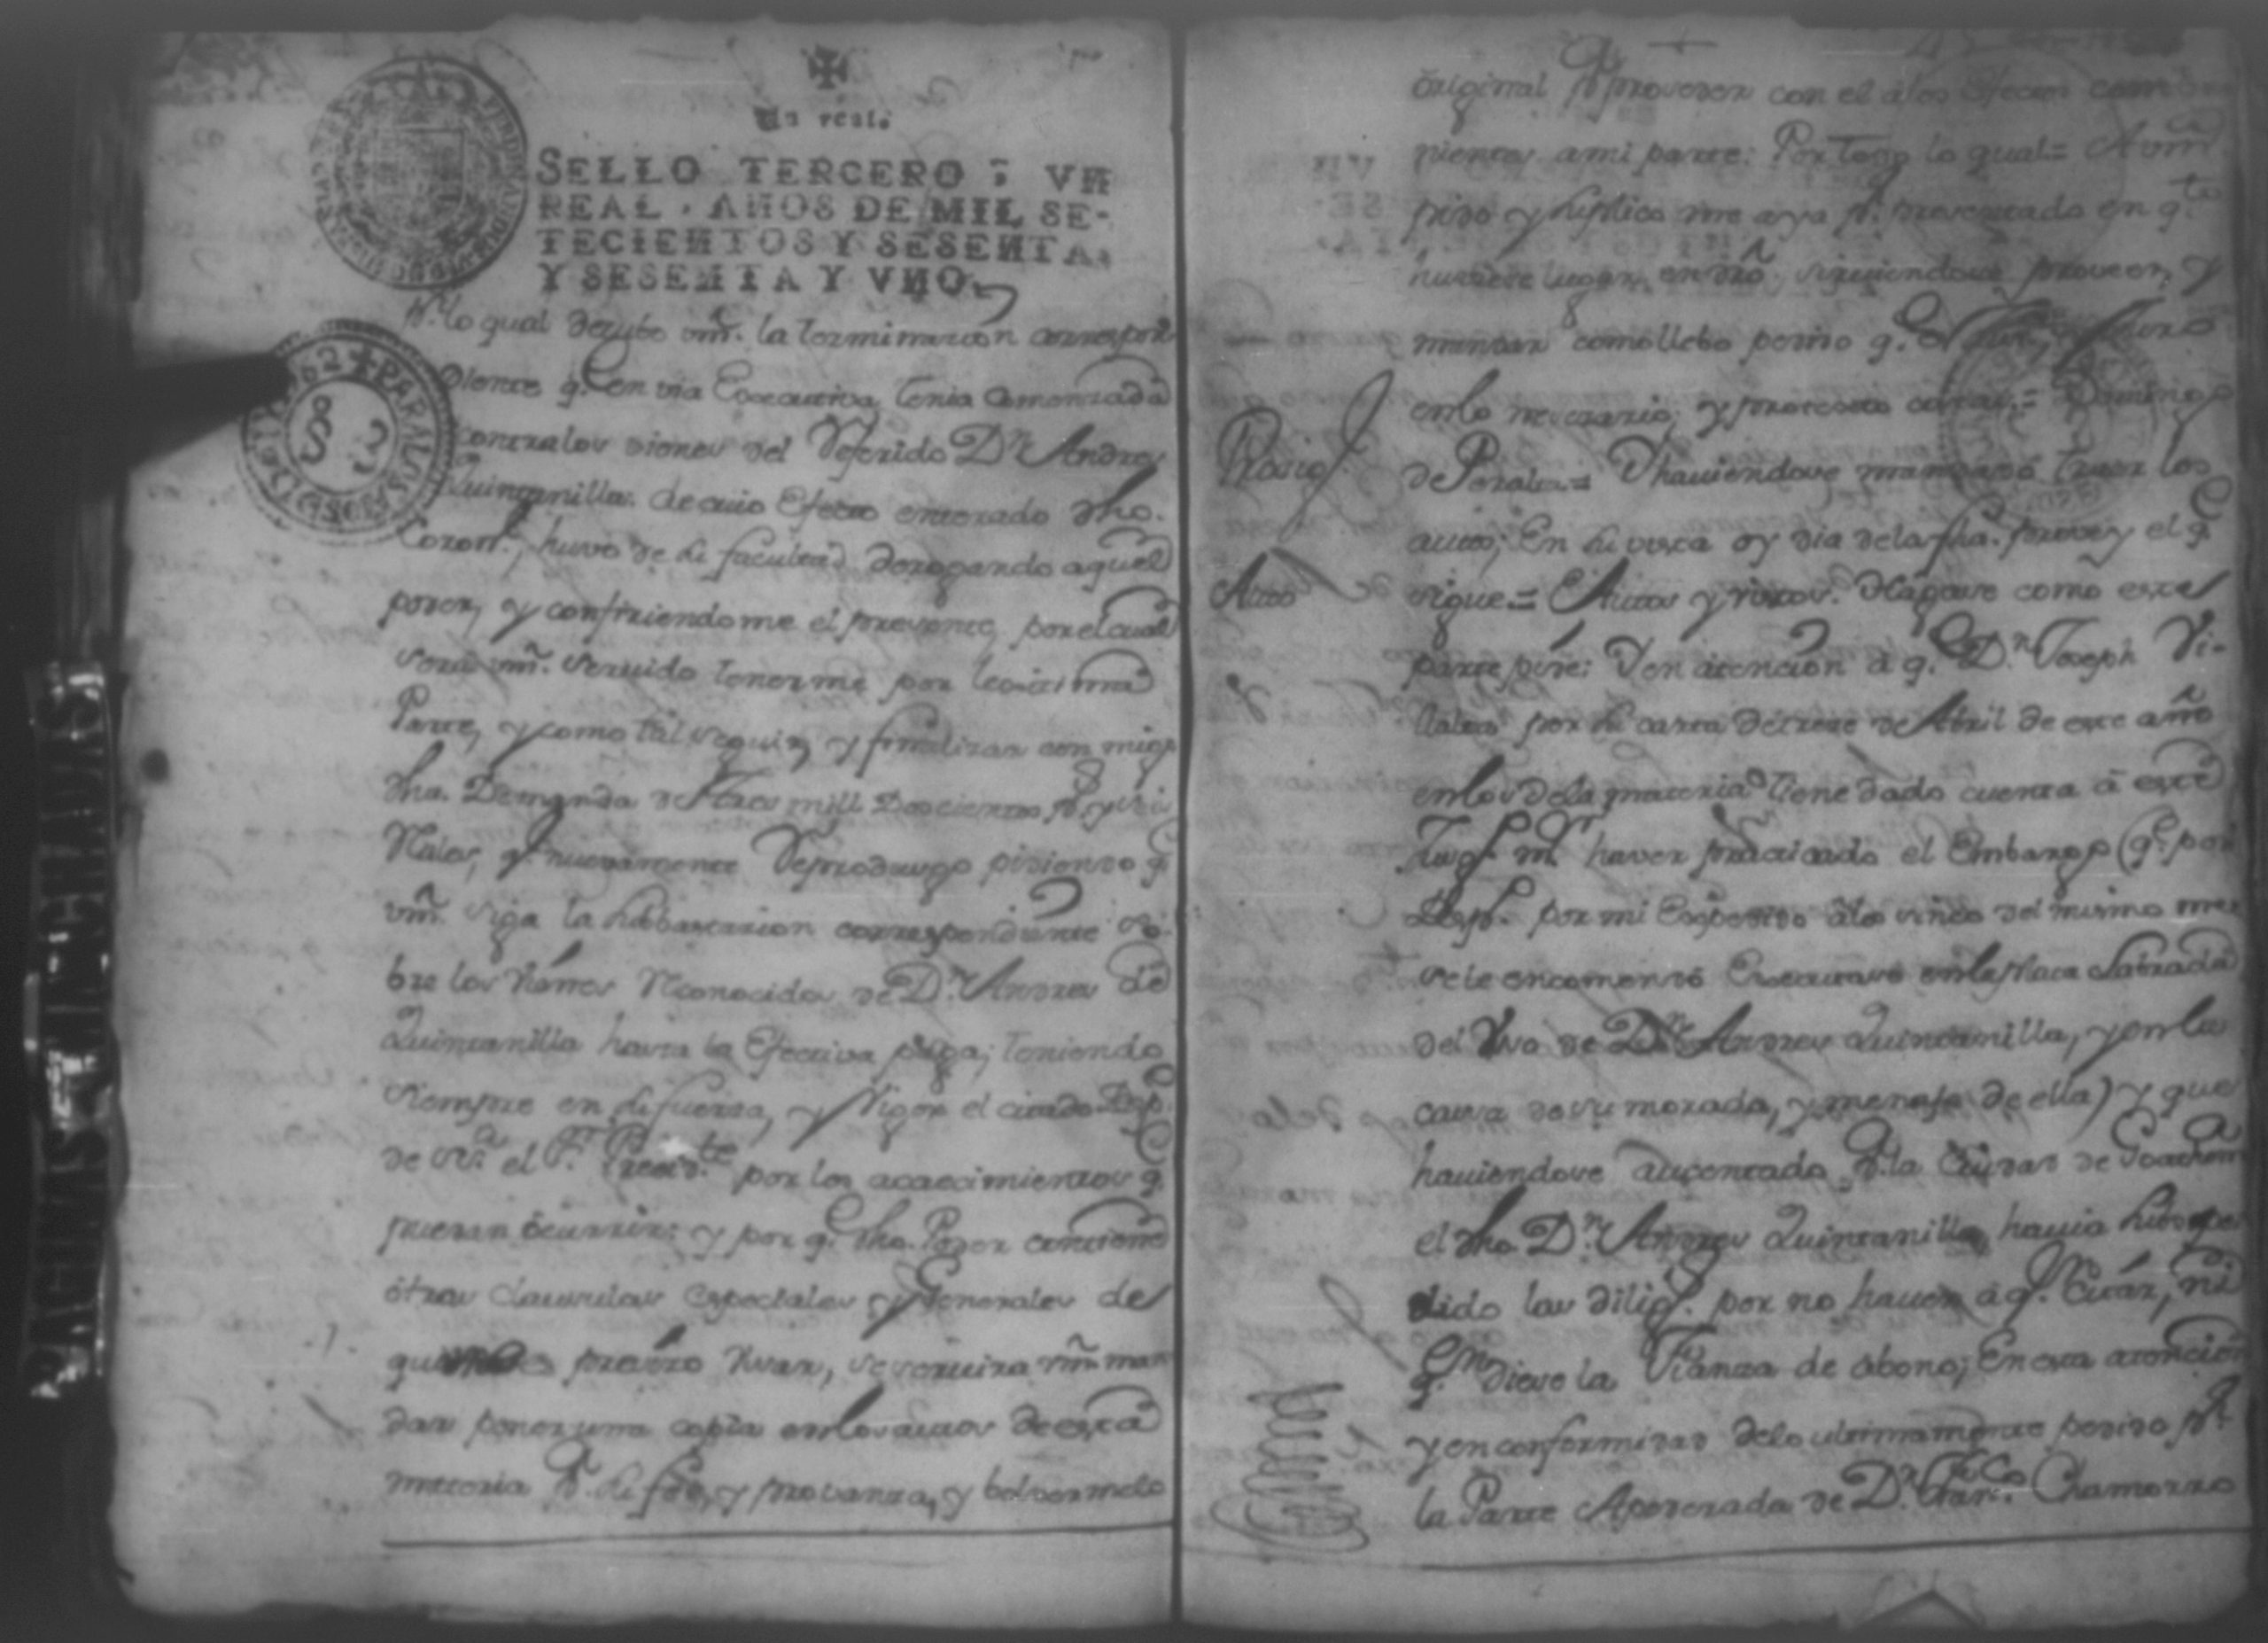 Un real.
SELLO TERCERO, VN
REAL, AÑOS DE MIL SE-
TECIENTOS Y SESENTA,
Y SESENTA Y VNO.
pr. lo qual vmd. la terminacion correspon
diente q. en via Executiva tenia
contra los vienes del Referido Dn. Andres
Quintanilla: de cuio Efecto enterado dho.
huvo de su facultad derogando aquel
poder, y confiriendome el presente, por el cual
sera vmd. servido tenerme por lexitima
Parte, y como tal seguir, y finalizar conmigo
dha. Demanda de tres mill Doscientos ps. y
Reales, q. nuevamente Reproduzgo pidiendo q.
vmd. siga la subastacion correspondiente so-
bre los vienes Reconocidos de Dn. Andres de
Quintanilla hasta la Efectiva paga; teniendo
siempre en su fuerza, y Vigor el citado
de el Sr. Presidte. por los acaecimientos q.
puedan ocurrir: y por q. dho. Poder contiene
otras clausulas especiales y Generales de
preciso Usar, se servira vmd. man
dar poner una copia en los autos de esta
materia pa. su fee, y provanza, y bolvermelo
original pa. proveder con el a los efectos combe
nientes a mi parte: Por todo lo qual= A vmd.
pido y suplico me aya pr. presentado en qto.
huviere lugar, en dro. sirviendose proveer, y
mandar como llebo pedido q. es
en lo necesario, y protesto costas.= Domingo
Prosigue
de Peralta.= Y haviendose mandado traer los
autos; En su vista oy dia de la fha. provey el q.
Auto
sigue= Autos y vistos: Hagase como esta
parte pide: Y en atencion a q. Dn. Joseph Vi-
llalta por su carta de trece de Abril de este año
en los de la materia tiene dado cuenta â este
Juzgo. no haver practicado el Embargo (q. por
Desp. por mi Expedido â los veinte del mismo mes
se le encomendó Executase en la plata labrada
del Uso de Dn. Andres Quintanilla, y en la
cassa de su morada, y menaje de ella) y que
haviendose aucentado pa. la Ciudad de Goathema
el dho. Dn. Andres Quintanilla havia suspen
dido las diligs. por no haver a qn. Citar, ni
qn. diese la Fianza de abono; En esta atencion
y en conformidad de lo ultimamente pedido pr.
la Parte Apoderada de Dn. Franco. Chamorro